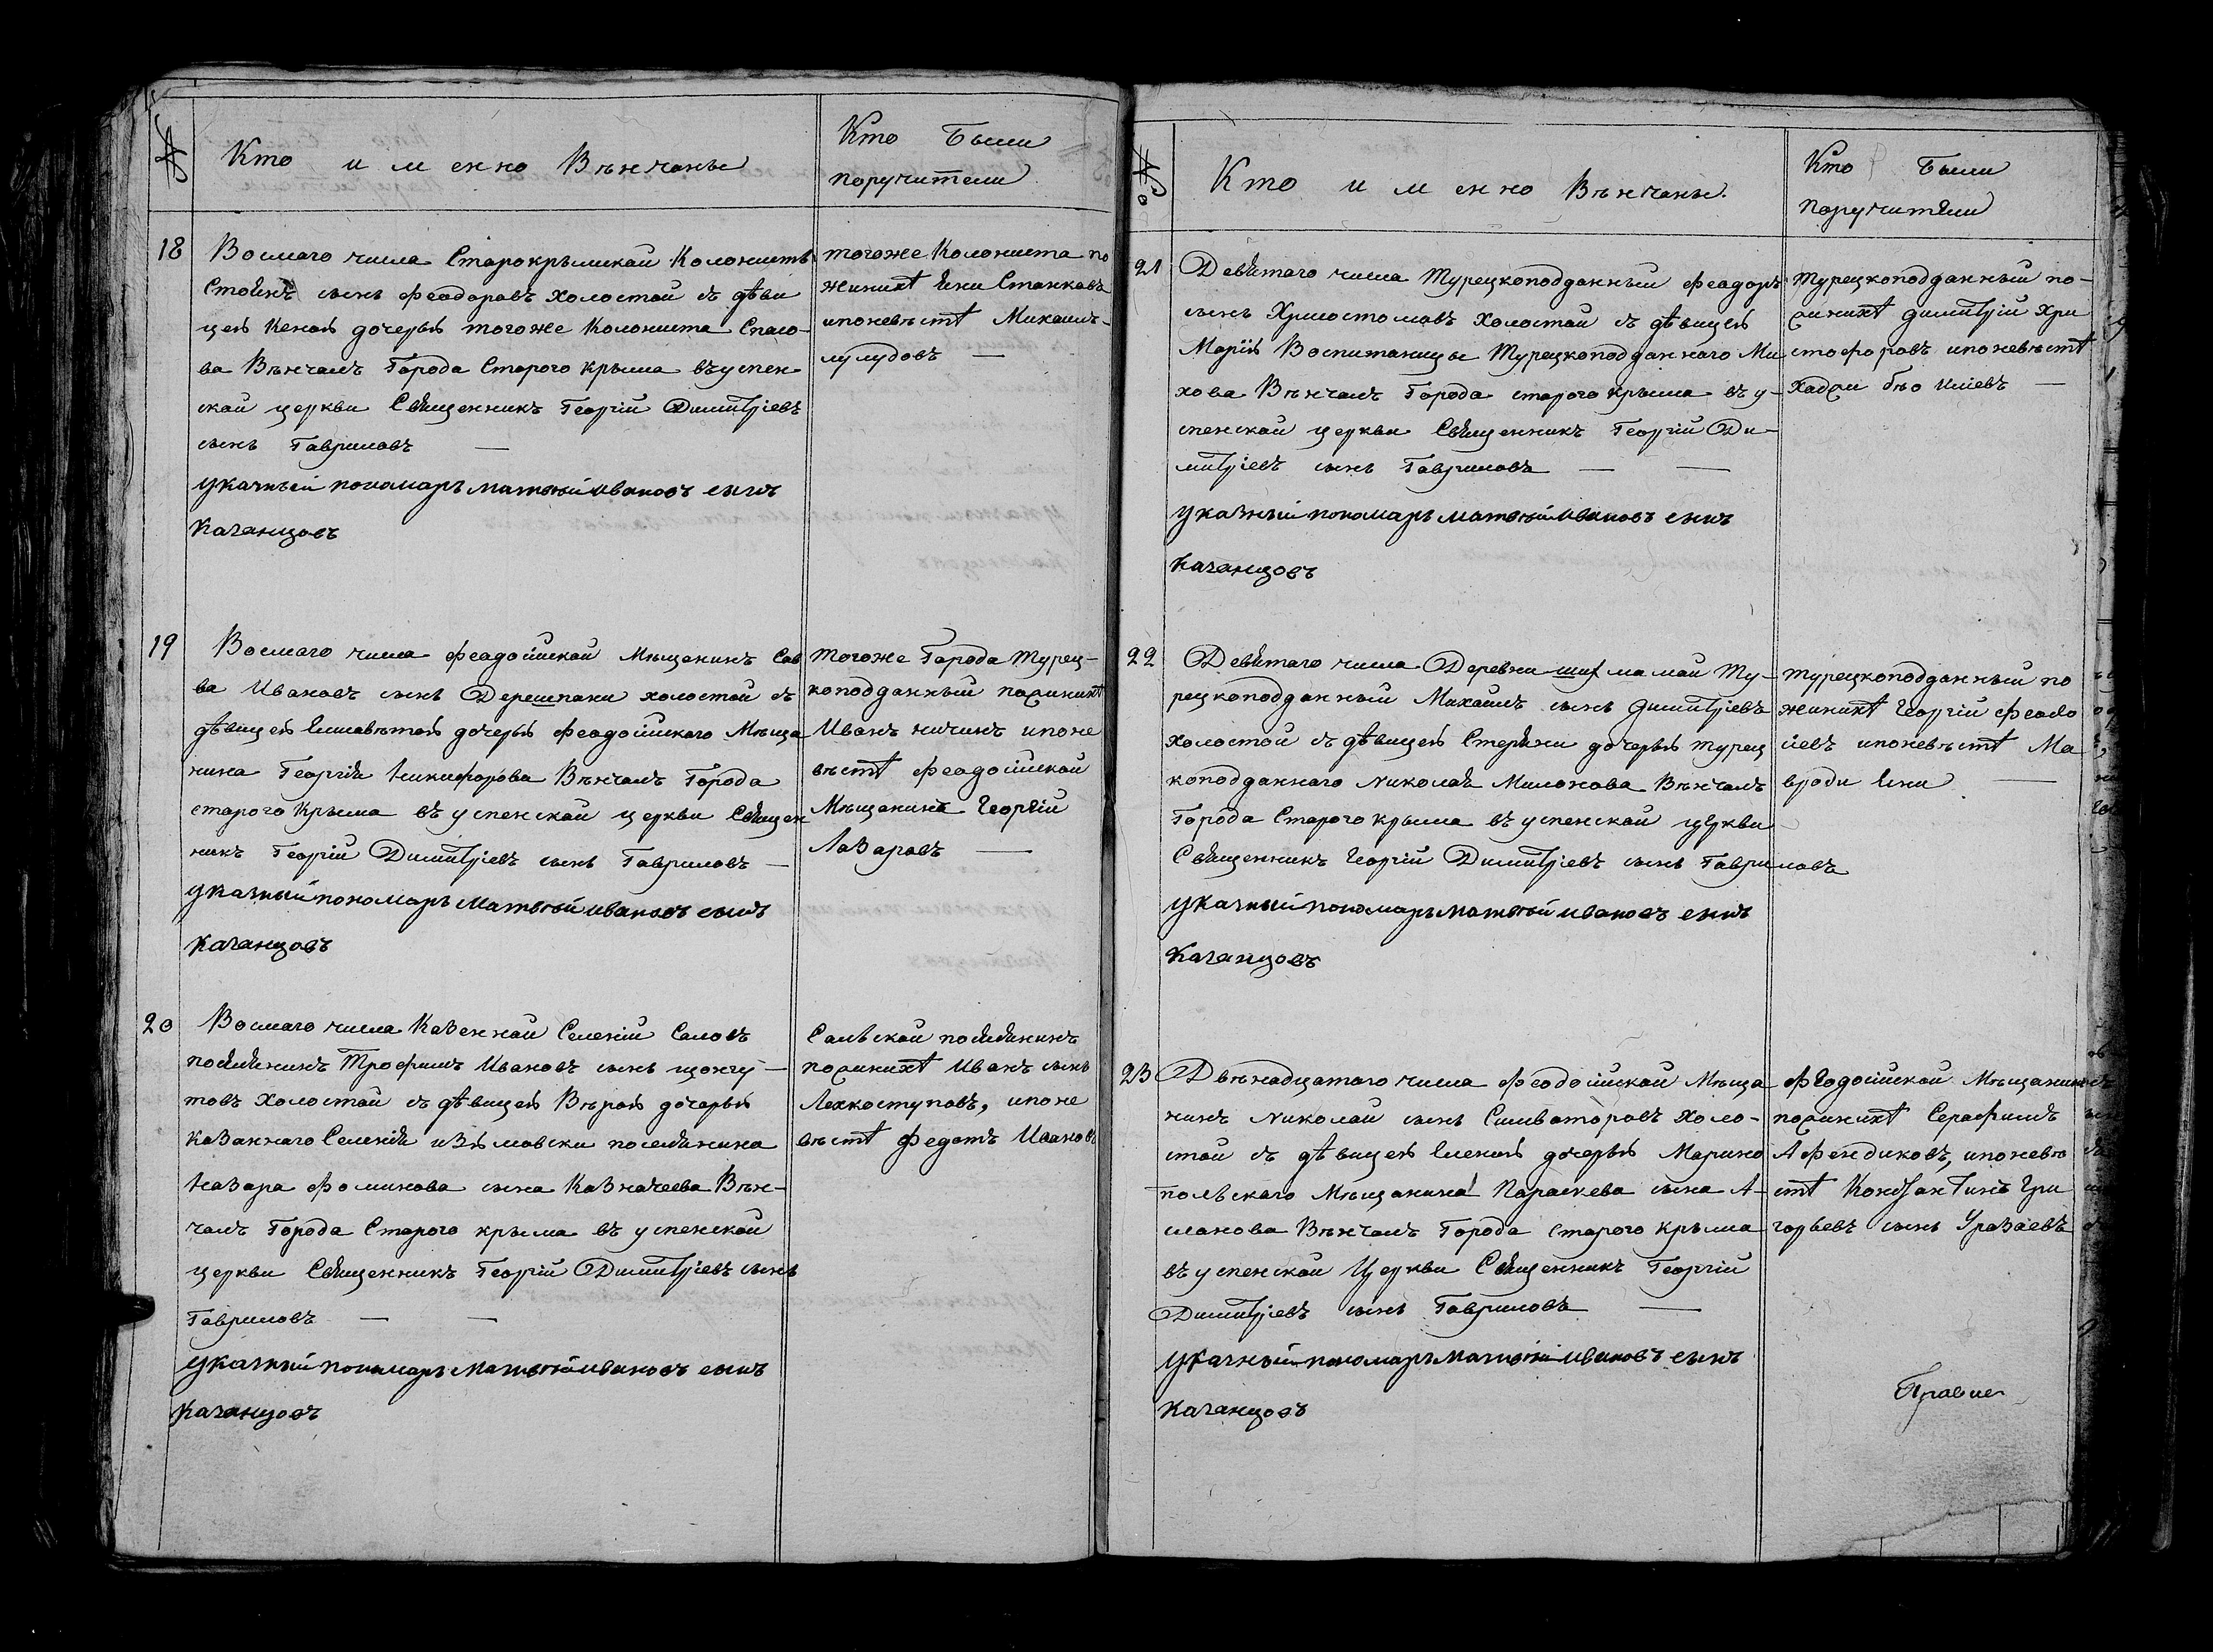 №
Кто именно Вѣнчаны
Кто Были
поручители
18
Восмаго числа Старокрымскай Колонистъ
Стоянъ сынъ Феодоравъ холостой съ дѣви
цея Кеной дочерья тогоже Колониста Спасо-
ва Вѣнчалъ Города Старого Крыма въ успен
ской церкви Священникъ Георгій Димитріевъ
сынъ Гавриловъ —
указный пономарь матвѣй ивановъ сынъ
Качанцовъ
тогоже Колониста по
женихѣ Яни Станковъ
ипоневѣстѣ Михаилъ-
лулудовъ —
19
Восмаго числа Феадосійскай Мѣщенинъ Сав
ва Ивановъ сынъ Дерешпани холостой съ
дѣвицей Елисаветой дочерья Феадосійскаго Мѣща
нина Георгія Никифорова Вѣнчалъ Города
старого Крыма въ успенскай церкви Священ
никъ Георгій Димитріевъ сынъ Гавриловъ —
указный пономарь Матвѣй ивановъ сынъ
Качанцовъ
тогоже Города Турец-
коподданный пожинихѣ
Иванъ ничинъ ипоне
вѣстѣ Феадосійскай
Мѣщенинъ Георгій
Лазаровъ —
20
Восмаго числа Казеннай Селеній Саловъ
посялянинъ Трофимъ Ивановъ сынъ щонгу-
товъ холостой съ дѣвицей Вѣрой дочерья
казаннаго Селенія изюмовски посялянина
Назара Фоминова сына Казначеева Вѣн-
чалъ Города Старого крыма въ успенской
церкви Священникъ Георгій Димитріевъ сынъ
Гавриловъ — —
указный пономарь Матвѣй ивановъ сынъ
Качанцовъ
Салѣвскай посялянинъ
пожинихѣ Иванъ сынъ
Лехкоступовъ, ипоне
вѣстѣ Федотъ Ивановъ
№
Кто именно Вѣнчаны.
Кто Были
поручители
21
Девятаго числа Турецкоподданный Феадоръ
сынъ Хрисостомовъ холостой съ дѣвицей
Марія Воспитаницы Турецкоподданнаго Ми
хова Вѣнчалъ Города старого крыма въ у-
спенскай церкви Священникъ Георгій Ди-
митріевъ сынъ Гавриловъ — —
указный пономарь матвѣй ивановъ сынъ
качанцовъ
Турецкоподданный по-
жинихѣ Димитрій Хри
стофоровъ ипоневѣстѣ
Хаджи
22
Девятаго числа Деревни шихмамай Ту-
рецкоподданный Михаилъ сынъ Димитріевъ
холостой съ дѣвицей Стеряни дочерья турец
коподданнаго Николая Милонова Вѣнчалъ
Города Старого крыма въ успенской церкви
Священникъ Георгій Димитріевъ сынъ Гавриловъ
указный пономарь матвѣй ивановъ сынъ
Качанцовъ
турецкоподданный по
женихѣ Георгій Феадо
сіевъ ипоневѣстѣ Ма
вроди Яни —
23
Двѣнадцатого числа Феодосійской Мѣща
нинъ Николай сынъ Силиваторовъ Холо-
стой съ дѣвицей Еленой дочерья Марино
польскаго Мѣщанина Параскева сына А-
сланова Вѣнчалъ Города старого крыма
въ успенской Церкви Священникъ Георгій
Димитріевъ сынъ Гавриловъ —
указный пономарь матвѣй ивановъ сынъ
Качанцовъ
Феодосійской Мѣщанинъ
пожинихѣ Серафимъ
Афендиковъ, ипоневѣ
стѣ Константинъ Гри
горьевъ сынъ Уразаевъ